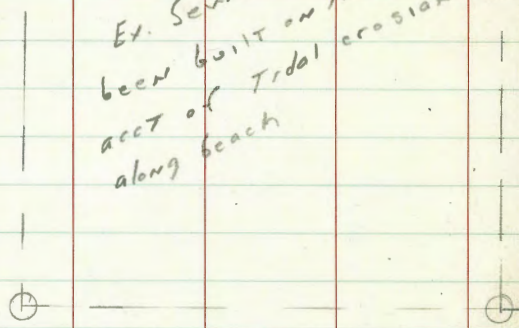 Ex.
been built on
acct of Tidal erosion
along beach